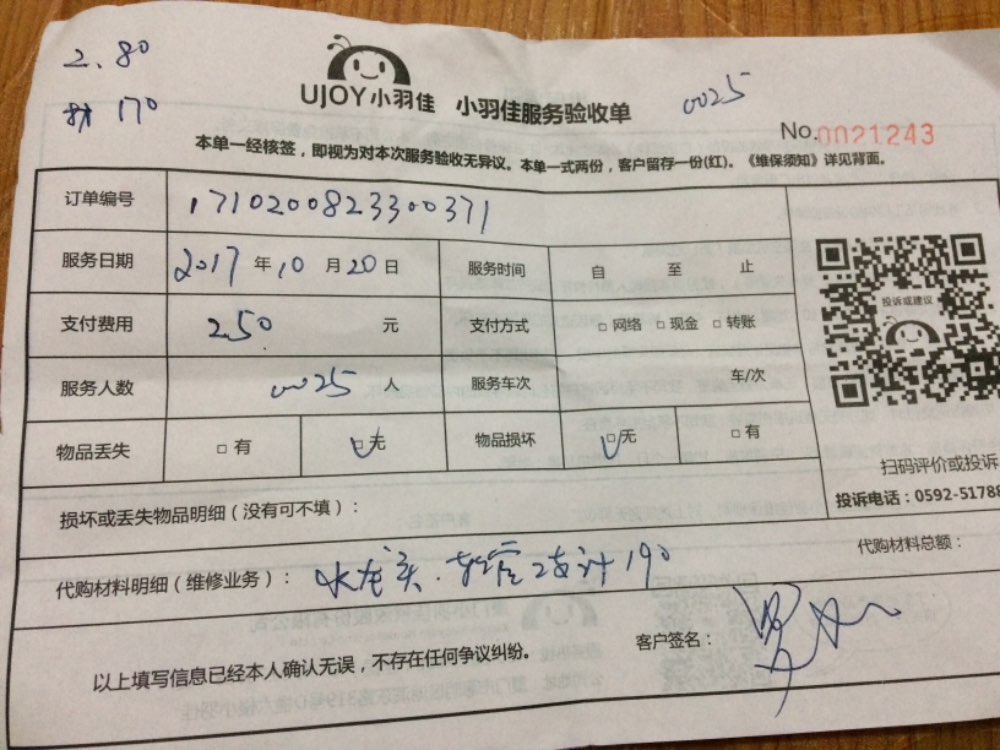 2.80
材 170
UJOY小羽佳 小羽佳服务验收单
0025
No.0021243
本单一经核签，即视为对本次服务验收无异议。本单一式两份，客户留存一份(红)。《维保须知》详见背面。
订单编号 1710200823300371
服务日期 2017年10月20日 服务时间 自 至 止
支付费用 250 元 支付方式 □网络 □现金 □转账
投诉或建议
服务人数 0025 人 服务车次 车/次
物品丢失 □有 □无 物品损坏 □无 □有
扫码评价或投诉
投诉电话：0592-51788
损坏或丢失物品明细（没有可不填）：
代购材料总额：
代购材料明细（维修业务）： 水龙头. 软管2支计190
客户签名：
以上填写信息已经本人确认无误，不存在任何争议纠纷。